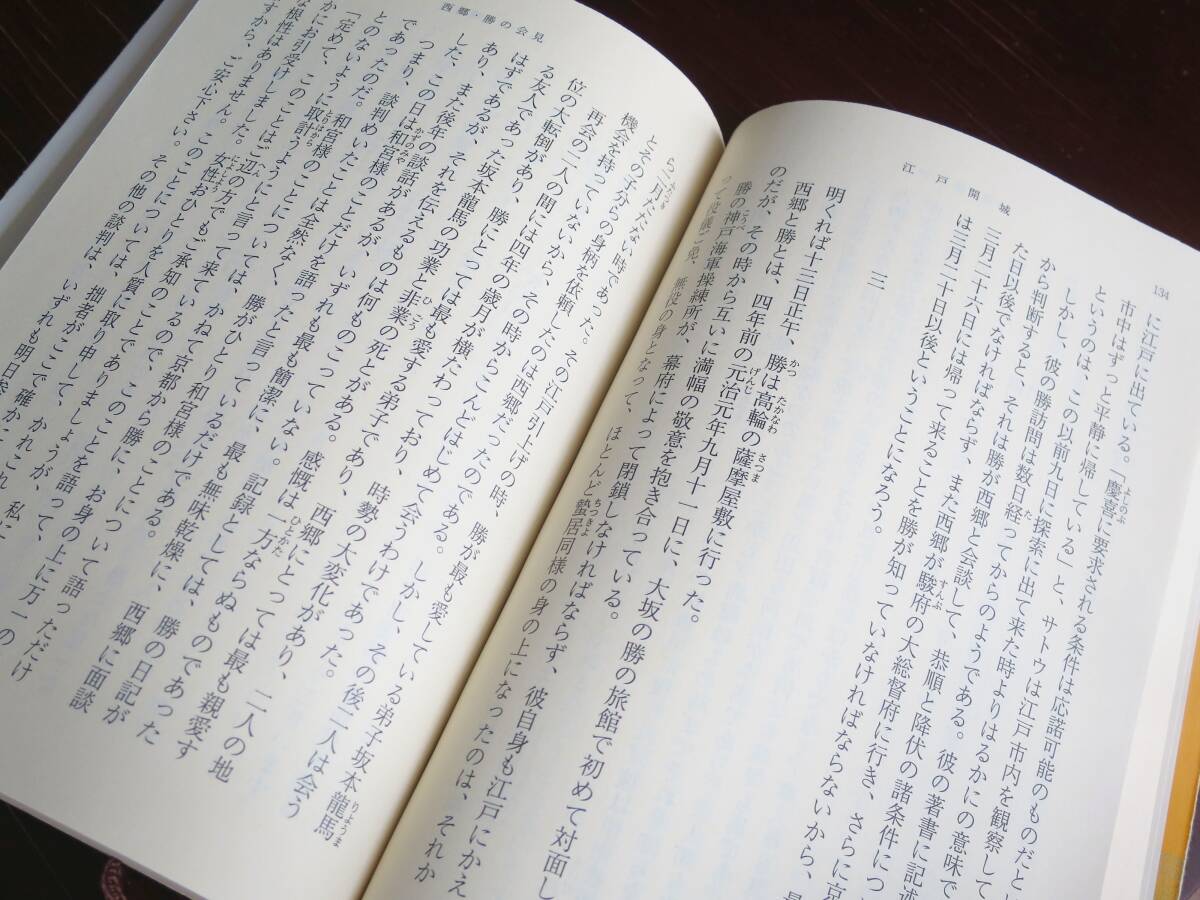 134
江戸開城
に江戸に出ている。「慶喜に要求される条件は応諾可能のものだと
よしのぶ
市中はずっと平静に帰している」と、サトウは江戸市内を観察して
というのは、この以前九日に探索に出て来た時よりはるかにの意味で
しかし、彼の勝訪問は数日経ってからのようである。彼の著書に記述
た
から判断すると、それは勝が西郷と会談して、恭順と降伏の諸条件につ
た日以後でなければならず、また西郷が駿府の大総督府に行き、さらに京
すんぷ
三月二十六日には帰って来ることを勝が知っていなければならないから、
は三月二十日以後ということになろう。
三
明くれば十三日正午、勝は高輪の薩摩屋敷に行った。
かつ
たかなわ
さつま
西郷と勝とは、四年前の元治元年九月十一日に、大坂の勝の旅館で初めて対面し
げんじ
のだが、その時から互いに満幅の敬意を抱き合っている。
勝の神戸海軍操練所が、幕府によって閉鎖しなければならず、彼自身も江戸にかえ
こうべ
って役儀ご免、無役の身となって、ほとんど蟄居同様の身の上になったのは、それか
ちっきょ
西郷・勝の会見
ら二月たたない時であった。その江戸引上げの時、勝が最も愛している弟子坂本龍馬
ふたつき
りょうま
とその子分らの身柄を依頼したのは西郷だったのである。しかし、その後二人は会う
機会を持っていないから、その時からこんどはじめて会うわけであった。
再会の二人の間には四年の歳月が横たわっており、時勢の大変化があり、二人の地
位の大転倒があり、勝にとっては最も愛する弟子であり、西郷にとっては最も親愛す
る友人であった坂本龍馬の功業と非業の死とがある。感慨は一方ならぬものであった
ひごう
ひとかた
はずであるが、それを伝えるものは何ものこっていない。記録としては、勝の日記が
あり、また後年の談話があるが、いずれも最も簡潔に、最も無味乾燥に、西郷に面談
した、この日は和宮様のことだけを語ったと言っているだけである。
かずのみや
つまり、談判めいたことは全然なく、勝がひとり和宮様のことについて語っただけ
であったのだ。
とのないように取計うようにと言っては、かねて京都から
とりはから
「定めて、和宮様のことについては、
かにお引受けしました。
このことはご辺の方でもご承知のことで
へん
な根性はありません。女性おひとりを人質に取り
によしよう
すから、ご安心下さい。このことについては、
その他の談判は、いずれも明日